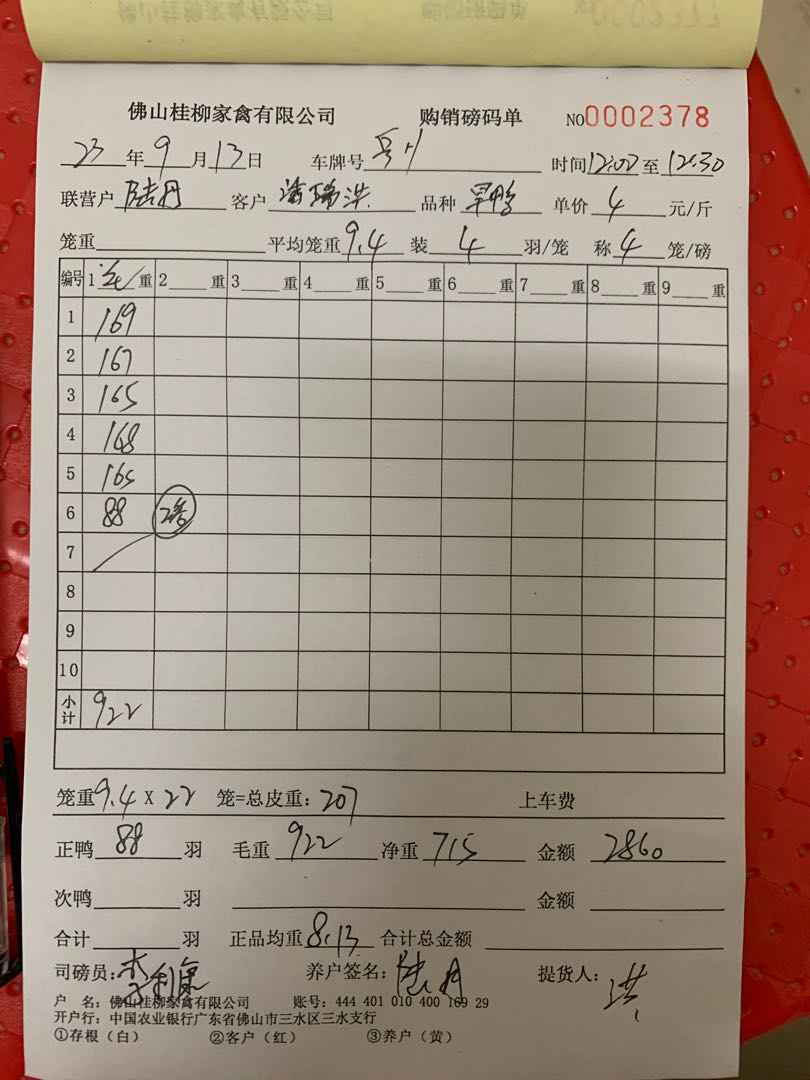 佛山桂柳家禽有限公司 购销磅码单 NO0002378
23年9月13日 车牌号 时间12:00至12:30
联营户陆丹 客户潘瑞洪 品种旱鸭 单价4元/斤
笼重 平均笼重9.4 装4羽/笼 称4笼/磅
编号 1毛重 2重 3重 4重 5重 6重 7重 8重 9重
1 169
2 167
3 165
4 168
5 165
6 88
7
8
9
10
小计 922
笼重9.4X22 笼=总皮重:207 上车费
正鸭88羽 毛重922 净重715 金额2860
次鸭羽 金额
合计羽 正品均重8.13 合计总金额
司磅员: 养户签名:陆丹 提货人:洪
户 名:佛山桂柳家禽有限公司 账号:444 401 010 400 169 29
开户行:中国农业银行广东省佛山市三水区三水支行
①存根(白) ②客户(红) ③养户(黄)